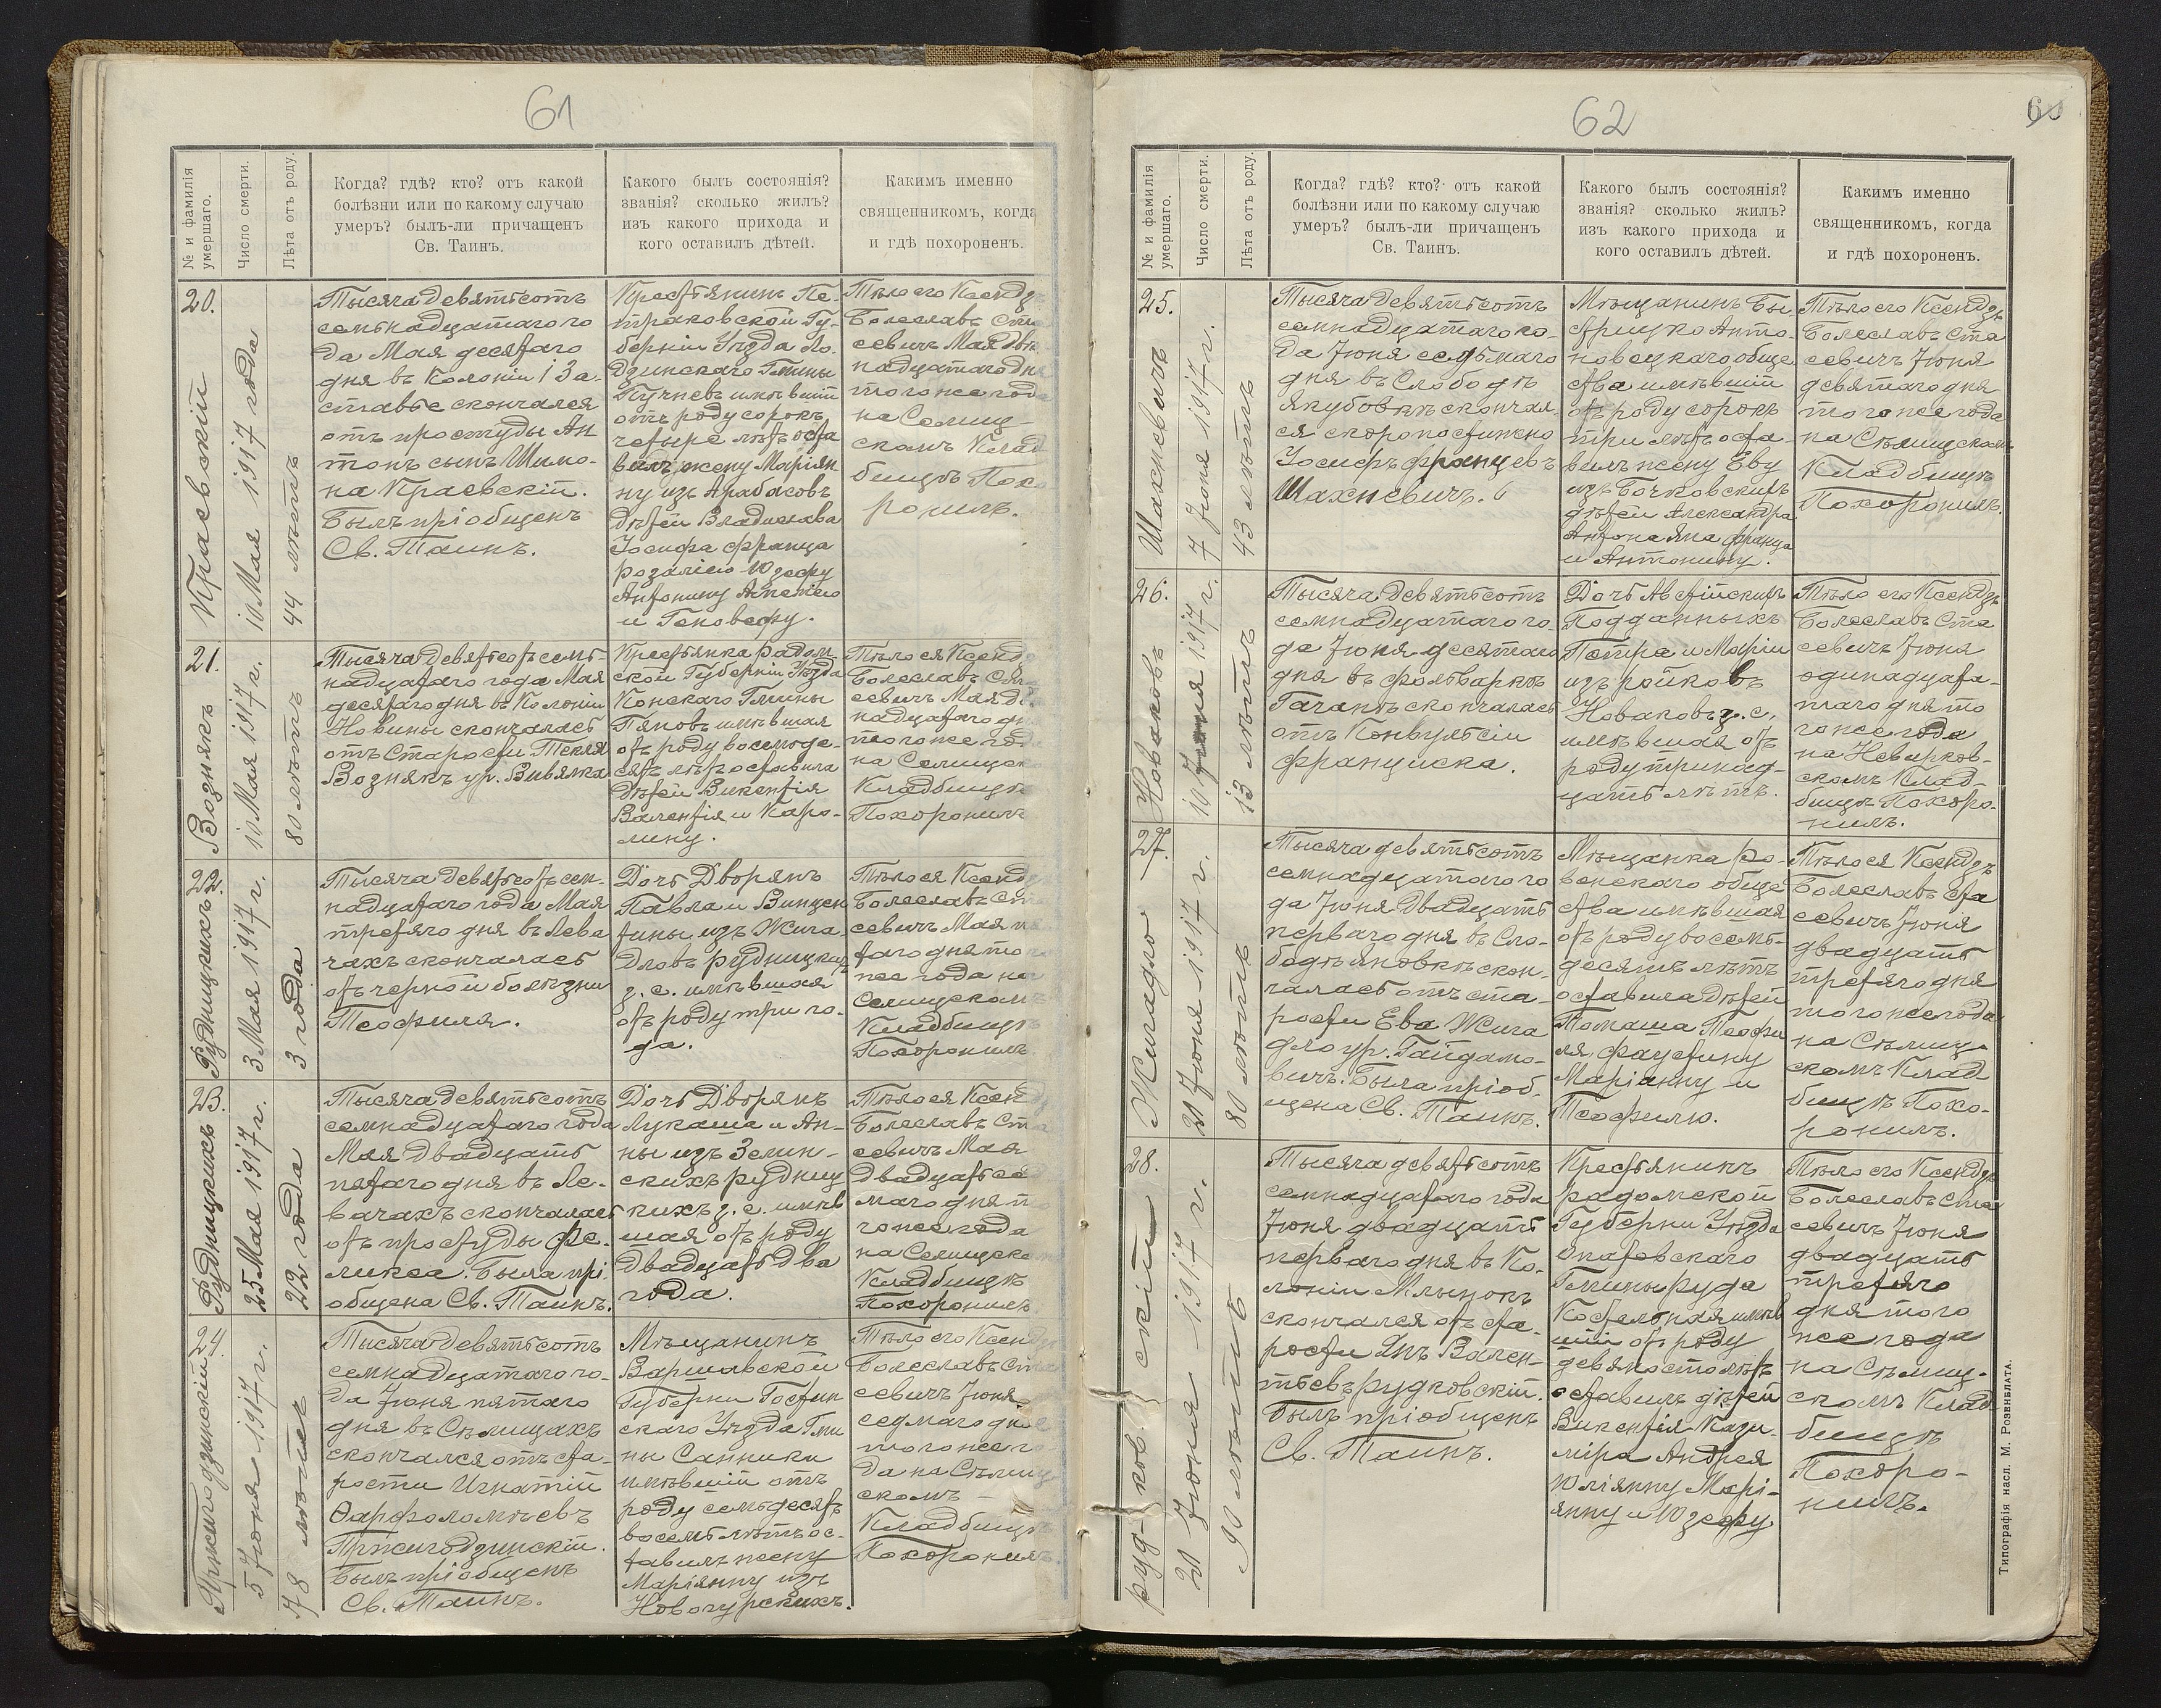 61
№ и фамилія
умершаго.
Число смерти.
Лѣта отъ роду.
Когда? гдѣ? кто? отъ какой
болѣзни или по какому случаю
умеръ? былъ-ли причащенъ
Св. Таинъ.
Какого былъ состоянія?
званія? сколько жилъ?
изъ какого прихода и
кого оставилъ дѣтей.
Какимъ именно
священникомъ, когда
и гдѣ похороненъ.
20.
Краевскій
10 Мая 1917 года
44 лѣтъ
Тысяча девятьсотъ
семьнадцатаго го
да Мая десятаго
дня въ Колоніи
ставье скончался
отъ простуды Ан
тонъ сынъ Шимо-
на Краевскій.
Былъ пріобщенъ
Св. Таинъ.
Крестьянинъ Пе-
траковской Гу-
берніи Уѣзда Ло-
дзинскаго Гмины
Пучневъ имѣвшій
отъ роду сорокъ
четыре лѣтъ оста
вилъ жену Маріян
ну изъ Арабасовъ
Дѣтей Владислава
Іосифа Франца
Розалію Юзефу
Антонину
и Геновефу.
Тѣло его Ксендзъ
Болеславъ Ста
севичъ Мая
надцатаго дня
того же года
на Селищ-
скомъ Клад
бищѣ Похо
ронилъ.
21.
Вознякъ
10 Мая 1917 г.
80 лѣтъ
Тысяча девятьсотъ семь-
надцатаго года Мая
десятаго дня въ Колоніи
Новины скончалась
отъ старости Текля
Вознякъ ур.
Крестьянка Радом
ской Губерніи Уѣзда
Конскаго Гмины
имѣвшая
отъ роду восемьде-
сятъ лѣтъ оставила
Дѣтей Викентія
Валентія и Каро-
лину.
Тѣло ея Ксендзъ
Болеславъ Ста
севичъ Мая
надцатаго дня
того же года
на Селищскомъ
Кладбищѣ
Похоронилъ
22.
Рудницкихъ
3 Мая 1917 г.
3 года
Тысяча девятьсотъ сем-
надцатаго года Мая
третяго дня въ Лева
чахъ скончалась
отъ черной болѣзни
Теофиля.
Дочь Дворянъ
Павла и Винцен
тины изъ Жига
дловъ Рудницкихъ
з. с. имѣвшая
отъ роду три го-
да.
Тѣло ея Ксендзъ
Болеславъ Ста
севичъ Мая пя
таго дня того
же года на
Селищскомъ
Кладбищѣ
Похоронилъ
23.
Рудницкихъ
25 Мая 1917 г.
22 года
Тысяча девятьсотъ
семнадцатаго года
Мая двадцать
пятаго дня въ Ле-
вачахъ скончалась
отъ простуды Фе-
ликса. Была прі
общена Св. Таинъ.
Дочь Дворянъ
Лукаша и Ан-
ны изъ Зелин-
скихъ Рудниц
кихъ з. с. имѣв
шая отъ роду
двадцать два
года.
Тѣло ея Ксендзъ
Болеславъ Ста
севичъ Мая
двадцать седь
маго дня то
го же года
на Селищскомъ
Кладбищѣ
Похоронилъ
24.
Пржигодзинскій
5 Іюня 1917 г.
78 лѣтъ
Тысяча девятьсотъ
семнадцатаго го-
да Іюня пятаго
дня въ Сѣлищахъ
скончался отъ ста-
рости Игнатій
Варфоломѣевъ
Пржигодзинскій.
Былъ пріобщенъ
Св. Таинъ.
Мѣщанинъ
Варшавской
Губерни Гостин
скаго Уѣзда Гми
ны Санники
имѣвшій отъ
роду семьдесятъ
восемь лѣтъ ос-
тавилъ жену
Маріянну изъ
Новогурскихъ.
Тѣло его Ксендзъ
Болеславъ Ста
севичъ Іюня
седмаго дня
того же го
да на Сѣлищ
скомъ
Кладбищѣ
Похоронилъ
62
60
№ и фамилія
умершаго.
Число смерти.
Лѣта отъ роду.
Когда? гдѣ? кто? отъ какой
болѣзни или по какому случаю
умеръ? былъ-ли причащенъ
Св. Таинъ.
Какого былъ состоянія?
званія? сколько жилъ?
изъ какого прихода и
кого оставилъ дѣтей.
Какимъ именно
священникомъ, когда
и гдѣ похороненъ.
25.
Шахневичъ
7 Іюня 1917 г.
43 лѣтъ
Тысяча девятьсотъ
семнадцатаго го-
да Іюня седьмаго
дня въ Слободѣ
Якубовкѣ сконча-
ся скоропостижно
Іосифъ Францевъ
Шахневичъ.
Мѣщанинъ Бы
стрицко Анто-
новецкаго обще
ства имѣвшій
отъ роду сорокъ
три лѣтъ оста-
вилъ жену Еву
изъ Бочковскихъ
дѣтей Александра
Антона Яна Франца
и Антонину.
Тѣло его Ксендзъ
Болеславъ Ста
севичъ Іюня
девятаго дня
того же года
на Сѣлищскомъ
Кладбищѣ
Похоронилъ.
26.
Новаковъ
10 Іюня 1917 г.
13 лѣтъ
Тысяча девятьсотъ
семнадцатаго го-
да Іюня десятаго
дня въ фольваркѣ
Гачанѣ скончалась
отъ Конвульсіи
Франциска.
Дочь Австійскихъ
Подданныхъ
Петра и Маріи
изъ Ройковъ
Новаковъ з. с.
имѣвшая отъ
роду тринад-
цать лѣтъ.
Тѣло его Ксендзъ
Болеславъ Ста
севичъ Іюня
одинадцата-
таго дня то
го же года
на Невирков-
скомъ Клад-
бищѣ Похоро-
нилъ.
27.
Жигадло
21 Іюня 1917 г.
80 лѣтъ
Тысяча девятьсотъ
семнадцатаго го
да Іюня двадцать
перваго дня въ Сло-
бодѣ Яновкѣ скон-
чалась отъ ста-
рости Ева Жига
дло ур. Гайдамо-
вичъ. Была пріоб-
щена Св. Таинъ.
Мѣщанка Ро-
венскаго обще
ства имѣвшая
отъ роду восемь-
десятъ лѣтъ
оставила дѣтей
Томаша Теофи
ля, Фаустину
Маріанну и
Теофилю.
Тѣло ея Ксендзъ
Болеславъ Ста
севичъ Іюня
двадцать
третяго дня
того же года
на Сѣлищ-
скомъ Клад
бищѣ Похо-
ронилъ.
28.
Руд-ков. скій
21 Іюня 1917 г.
90 лѣтъ
Тысяча девятьсотъ
семнадцатаго года
Іюня двадцать
перваго дня въ Ко-
лоніи Млынокъ
скончался отъ ста-
рости Янъ Вален-
тьевъ Рудковскій.
Былъ пріобщенъ
Св. Таинъ.
Крестьянинъ
Радомской
Губерни Уѣзда
Опатовскаго
Гмины Руда
Костельная имѣв
шій отъ роду
девяносто лѣтъ
оставилъ дѣтей
Викентія Кази-
міра Андрея
Юліянну Марі-
янну и Юзефу
Тѣло его Ксендзъ
Болеславъ Ста
севичъ Іюня
двадцать
третяго
дня того
же года
на Сѣлищ-
скомъ Клад
бищѣ
Похоро-
нилъ.
Типографія насл. М. Розенблата.